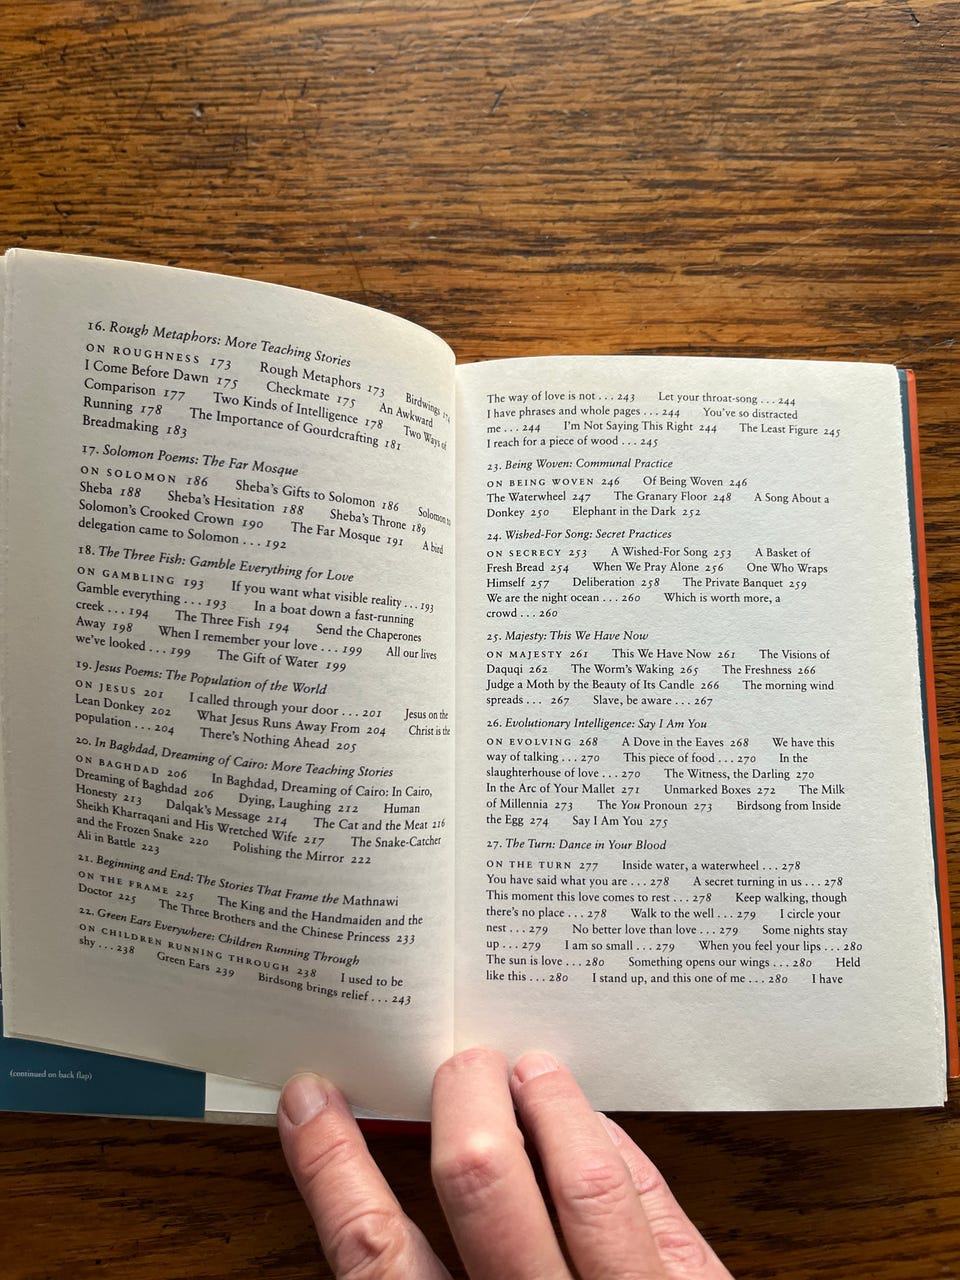 16. Rough Metaphors: More Teaching Stories
ON ROUGHNESS 173 Rough Metaphors 173 Birdwings 174
I Come Before Dawn 175 Checkmate 175 An Awkward
Comparison 177 Two Kinds of Intelligence 178 Two Ways of
Running 178 The Importance of Gourdcrafting 181
Breadmaking 183
17. Solomon Poems: The Far Mosque
ON SOLOMON 186 Sheba's Gifts to Solomon 186 Solomon to
Sheba 188 Sheba's Hesitation 188 Sheba's Throne 189
Solomon's Crooked Crown 190 The Far Mosque 191 A bird
delegation came to Solomon . . . 192
18. The Three Fish: Gamble Everything for Love
ON GAMBLING 193 If you want what visible reality . . . 193
Gamble everything . . . 193 In a boat down a fast-running
creek . . . 194 The Three Fish 194 Send the Chaperones
Away 198 When I remember your love . . . 199 All our lives
we've looked . . . 199 The Gift of Water 199
19. Jesus Poems: The Population of the World
ON JESUS 201 I called through your door . . . 201 Jesus on the
Lean Donkey 202 What Jesus Runs Away From 204 Christ is the
population . . . 204 There's Nothing Ahead 205
20. In Baghdad, Dreaming of Cairo: More Teaching Stories
ON BAGHDAD 206 In Baghdad, Dreaming of Cairo: In Cairo,
Dreaming of Baghdad 206 Dying, Laughing 212 Human
Honesty 213 Dalqak's Message 214 The Cat and the Meat 216
Sheikh Kharraqani and His Wretched Wife 217 The Snake-Catcher
and the Frozen Snake 220 Polishing the Mirror 222
Ali in Battle 223
21. Beginning and End: The Stories That Frame the Mathnawi
ON THE FRAME 225 The King and the Handmaiden and the
Doctor 225 The Three Brothers and the Chinese Princess 233
22. Green Ears Everywhere: Children Running Through
ON CHILDREN RUNNING THROUGH 238 I used to be
shy . . . 238 Green Ears 239 Birdsong brings relief . . . 243
(continued on back flap)
The way of love is not . . . 243 Let your throat-song . . . 244
I have phrases and whole pages . . . 244 You've so distracted
me . . . 244 I'm Not Saying This Right 244 The Least Figure 245
I reach for a piece of wood . . . 245
23. Being Woven: Communal Practice
ON BEING WOVEN 246 Of Being Woven 246
The Waterwheel 247 The Granary Floor 248 A Song About a
Donkey 250 Elephant in the Dark 252
24. Wished-For Song: Secret Practices
ON SECRECY 253 A Wished-For Song 253 A Basket of
Fresh Bread 254 When We Pray Alone 256 One Who Wraps
Himself 257 Deliberation 258 The Private Banquet 259
We are the night ocean . . . 260 Which is worth more, a
crowd . . . 260
25. Majesty: This We Have Now
ON MAJESTY 261 This We Have Now 261 The Visions of
Daquqi 262 The Worm's Waking 265 The Freshness 266
Judge a Moth by the Beauty of Its Candle 266 The morning wind
spreads . . . 267 Slave, be aware . . . 267
26. Evolutionary Intelligence: Say I Am You
ON EVOLVING 268 A Dove in the Eaves 268 We have this
way of talking . . . 270 This piece of food . . . 270 In the
slaughterhouse of love . . . 270 The Witness, the Darling 270
In the Arc of Your Mallet 271 Unmarked Boxes 272 The Milk
of Millennia 273 The You Pronoun 273 Birdsong from Inside
the Egg 274 Say I Am You 275
27. The Turn: Dance in Your Blood
ON THE TURN 277 Inside water, a waterwheel . . . 278
You have said what you are . . . 278 A secret turning in us . . . 278
This moment this love comes to rest . . . 278 Keep walking, though
there's no place . . . 278 Walk to the well . . . 279 I circle your
nest . . . 279 No better love than love . . . 279 Some nights stay
up . . . 279 I am so small . . . 279 When you feel your lips . . . 280
The sun is love . . . 280 Something opens our wings . . . 280 Held
like this . . . 280 I stand up, and this one of me . . . 280 I have